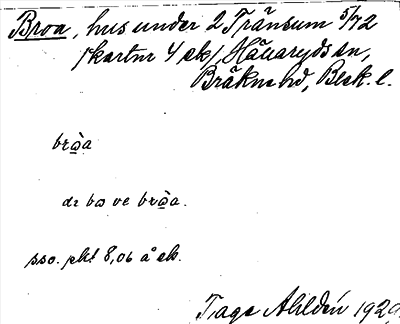 Broa, hus under 2 Tränsum 5/72
(kartnr 4 ek), Hällaryds sn,
Bräkne hd, Blek. l.
bro̲a
dr bo ve bro̲a.
sso. pkt 8,06 å ek.
Tage Ahldén 1929.